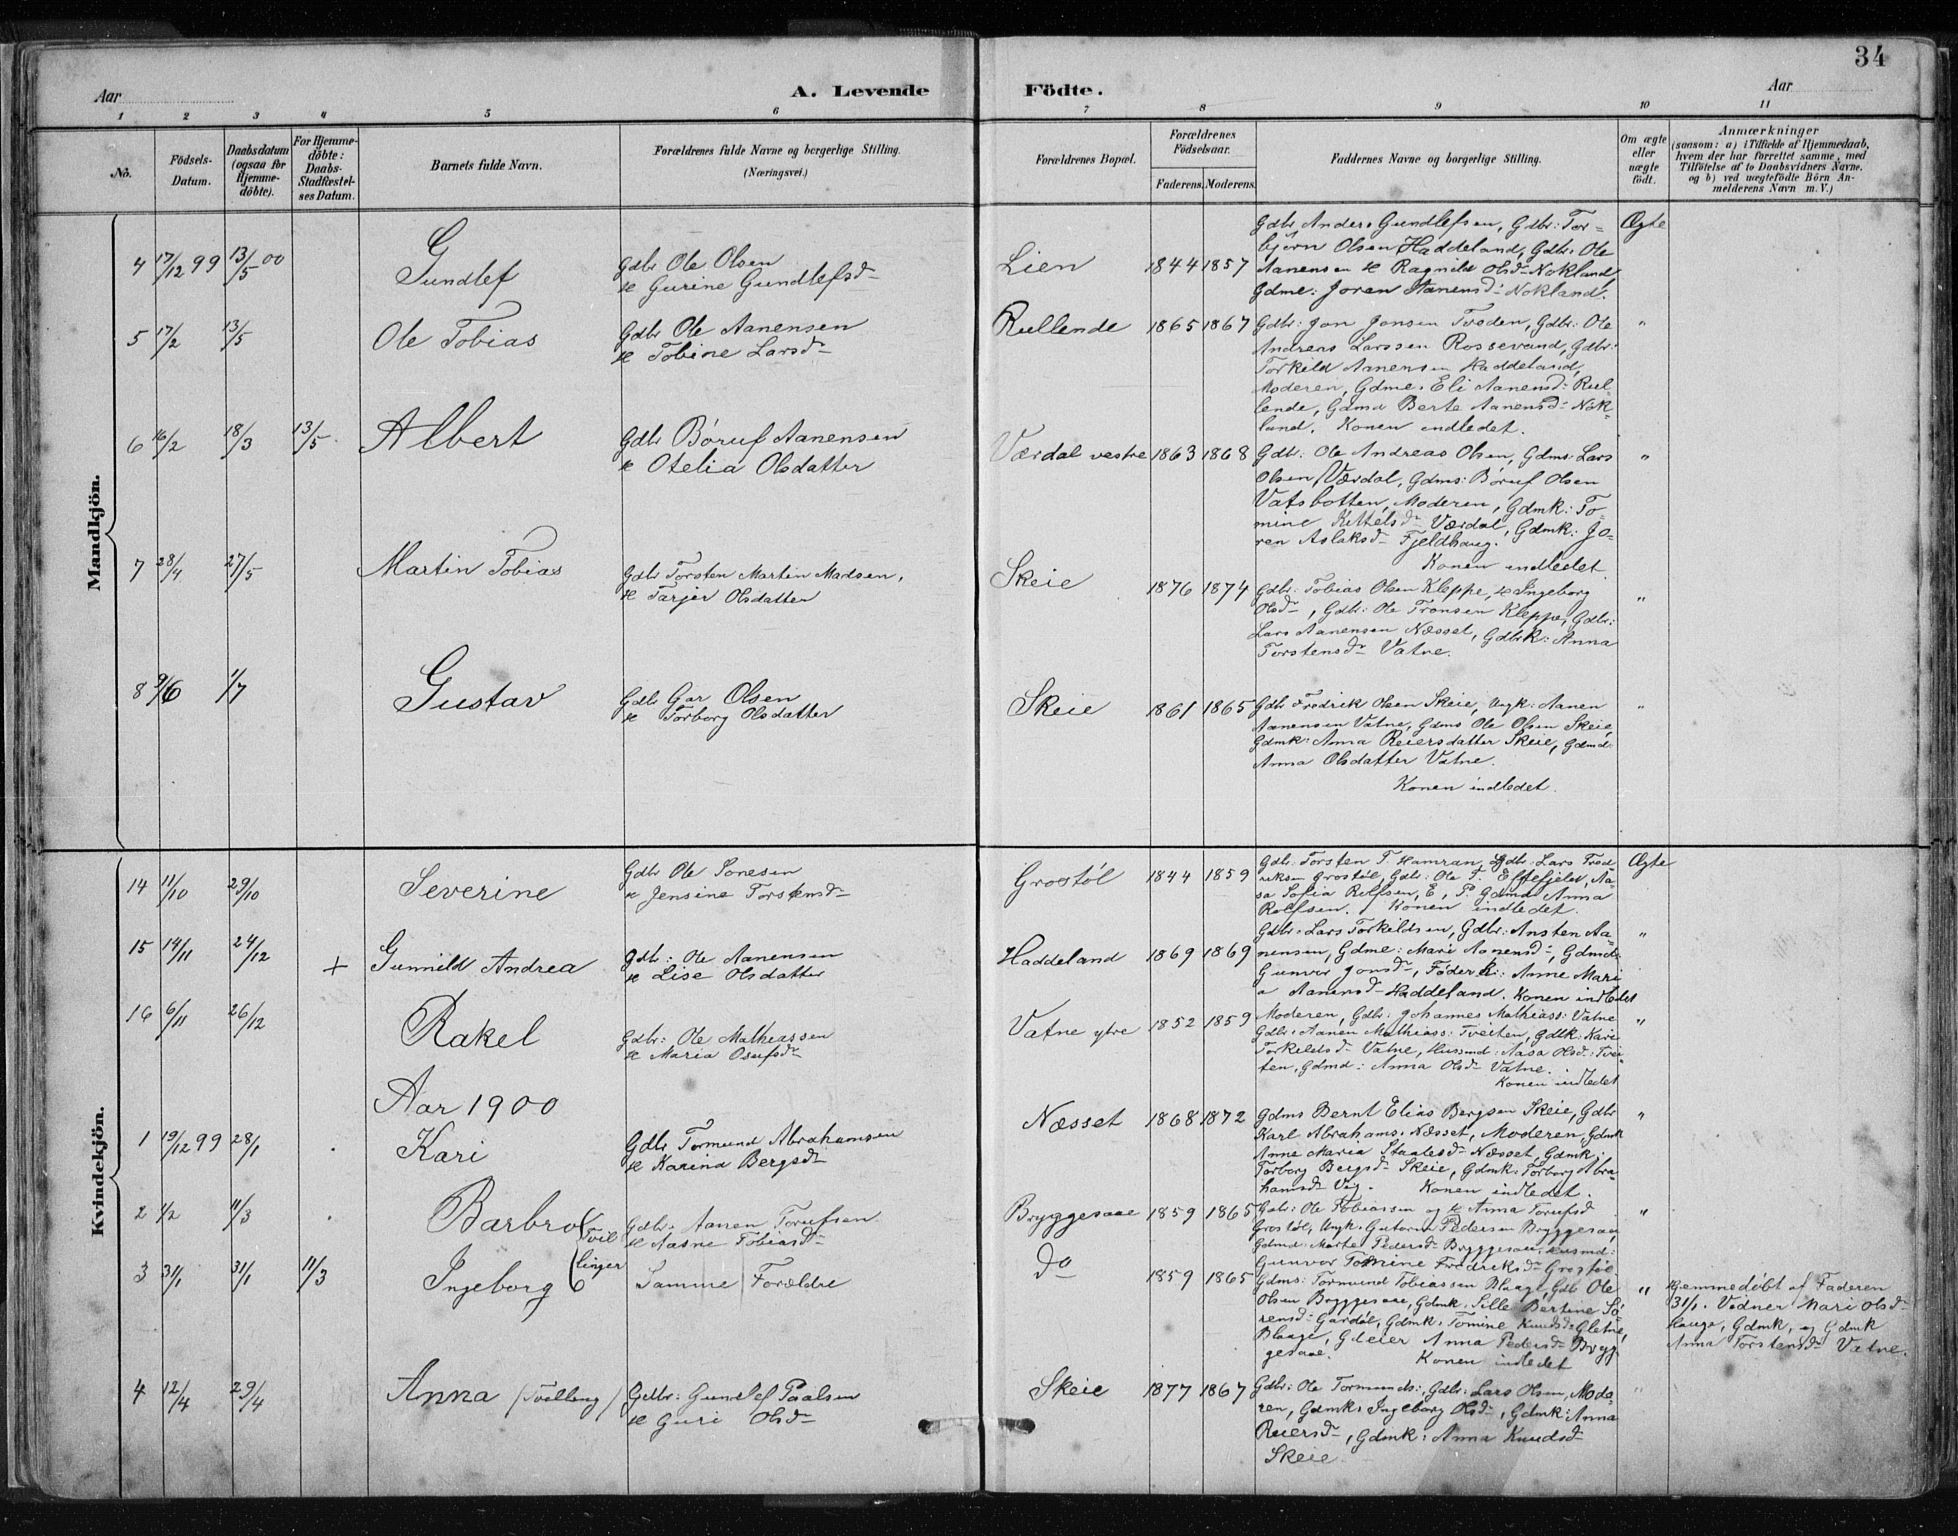 34
Aar
A. Levende
Födte.
Aar
1 2 3 4 5 6 7 8 9 10 11
No.
Födsels-Datum.
Daabsdatum (ogsaa for Hjemme-döbte).
For Hjemme-döbte: Daabs-Stadfæstel-ses Datum.
Barnets fulde Navn.
Forældrenes fulde Navne og borgerlige Stilling.
(Næringsvei.)
Forældrenes Bopæl.
Forældrenes Födselsaar.
Faderens. Moderens.
Faddernes Navne og borgerlige Stilling.
Om ægte eller uægte födt.
Anmærkninger
(saasom: a) i Tilfælde af Hjemmedaab,
hvem der har forrettet samme, med
Tilföielse af to Daabsvidners Navne,
og b) ved uægtefödte Börn An-
melderens Navn m. V.)
Mandkjön.
4 17/12 99 13/5 00 Gundlef
Gdbr Ole Olsen
& Gurine Gundlefsd
Lien 1844 1857
Gdbr. Anders Gundlefsen, Gdbr: Tor-
bjørn Olsen Haddeland, Gdbr: Ole
Aanensen & Ragnild Olsd Nokland,
Gdme: Joren Aanensd Nokland.
Ægte
5 17/2 13/5 Ole Tobias
Gdbr Ole Aanensen
& Tobine Larsd
Rullende 1865 1867
Gdbr: Jon Jonsen Troden, Gdbr: Ole
Andreas Larssen Rossevand, Gdbr:
Torkild Aanensen Haddeland,
Moderen, Gdme: Eli Aanensd Rul-
lende, Gdmd Berte Aanensd Nok-
land. Konen indledet.
"
6 16/2 18/3 13/5 Albert
Gdbr Børuf Aanensen
& Otelia Olsdatter
Værdal vestre 1863 1868
Gdbr: Ole Andreas Olsen, Gdms: Lars
Olsen Værdal, Gdms: Børuf Olsen
Vatsbotten, Moderen, Gdmk: To-
mine Kittelsd Værdal, Gdmk: Jo-
ren Aslaksd Fjeldhaug.
Konen indledet
"
7 28/4 27/5 Martin Tobias
Gdbr Torsten Martin Madsen,
& Tarjer Olsdatter
Skeie 1876 1874
Gdbr: Tobias Olsen Kleppe, & Ingeborg
Olsd, Gdbr: Ole Tronsen Kleppe, Gdbr:
Lars Aanensen Næsset, Gdbrk: Anna
Torstensd Vatne.
"
8 9/6 1/7 Gustav
Gdbr Gar Olsen
& Torborg Olsdatter
Skeie 1861 1865
Gdbr Fredrik Olsen Skeie, Ungk: Aanen
Aanensen Vatne, Gdms Ole Olsen Skeie,
Gdmk: Anna Reiersdatter Skeie, Gdmd:
Anna Olsdatter Vatne.
Konen indledet.
"
Kvindekjön.
14 11/10 29/10 Severine
Gdbr Ole Sonesen
& Jensine Torstensd
Grostøl 1844 1859
Gdbr: Torsten T. Hamran, Gdbr: Lars Fred-
riksen Grostøl, Gdbr: Ole T. Eftefjeld, Aa-
sa Sofia Rolfsen, Gdmd Anna
Rolfsen. Konen indledet.
Ægte
15 14/11 24/12 + Gunnild Andrea
Gdbr: Ole Aanensen
& Lise Olsdatter
Haddeland 1869 1869
Gdbr: Lars Torkildsen, Gdbr: Ansten Aa-
nensen, Gdme: Mari Aanensd, Gdmd:
Gunvor Jonsd, Anne Mari
a Aanensd Haddeland. Konen indledet
"
16 6/11 26/12 Rakel
Gdbr: Ole Mathiassen
& Maria Osufsd
Vatne ytre 1852 1859
Moderen, Gdbr: Johannes Mathiass: Vatne
Gdbr: Aanen Mathiass: Tveiten, Gdbk: Kari
Torkildsd Vatne, Husmd: Aasa Olsd: Tvei-
ten, Gdmd: Anna Olsd Vatne.
Konen indledet
"
Aar 1900
1 19/12 99 28/1 Kari
Gdbr Tormund Abrahamsen
& Karina Bergsd
Næsset 1868 1872
Gdms Bernt Elias Bergsen Skeie, Gdbr
Karl Abrahams: Næsset, Moderen, Gdmk
Anne Maria Staalesd Næsset, Gdmk:
Torborg Bergsd Skeie, Gdmk: Torborg Abra-
hamsd Vig. Konen indledet.
"
2 1/2 11/3 Barbro Tvil
Gdbr: Aanen Torufsen
& Aasne Tobiasd
Bryggesaae 1859 1865
Gdbr: Ole Tobiassen og & Anna Torufsd
Grostøl, Ungk: Gutorm Pedersen Bryggesaae,
Gdmd: Marte Pedersd Bryggesaae, Husmd:
Gunvor Tomine Fredriksd Grostøl
"
3 31/1 31/1 11/3 Ingeborg linger
Samme Forældre
Do 1859 1865
Gdms: Tormund Tobiassen Blaage, Gdbr Ole
Olsen Bryggesaae, Gdmk: Sille Bertine Sø-
rensd Gardøl, Gdmk: Tomine Knudsd Gletne,
Blaage, Anna Pedersd Bryg-
gesaae. Konen indledet
"
Hjemmedøbt af Faderen
31/1. Vidner Mari Olsd
Hauge, Gdmk, og Gdmk
Anna Torstensd Vatne.
4 12/4 29/4 Anna (Tvilling)
Gdbr: Gundlef Paalsen
& Guri Olsd
Skeie 1877 1867
Gdbr: Ole Tormunds:, Gdbr: Lars Olsen, Mode-
ren, Gdmk: Ingeborg Olsd, Gdmk: Anna
Reiersd, Gdmk: Anna Knudsd
Skeie.
"